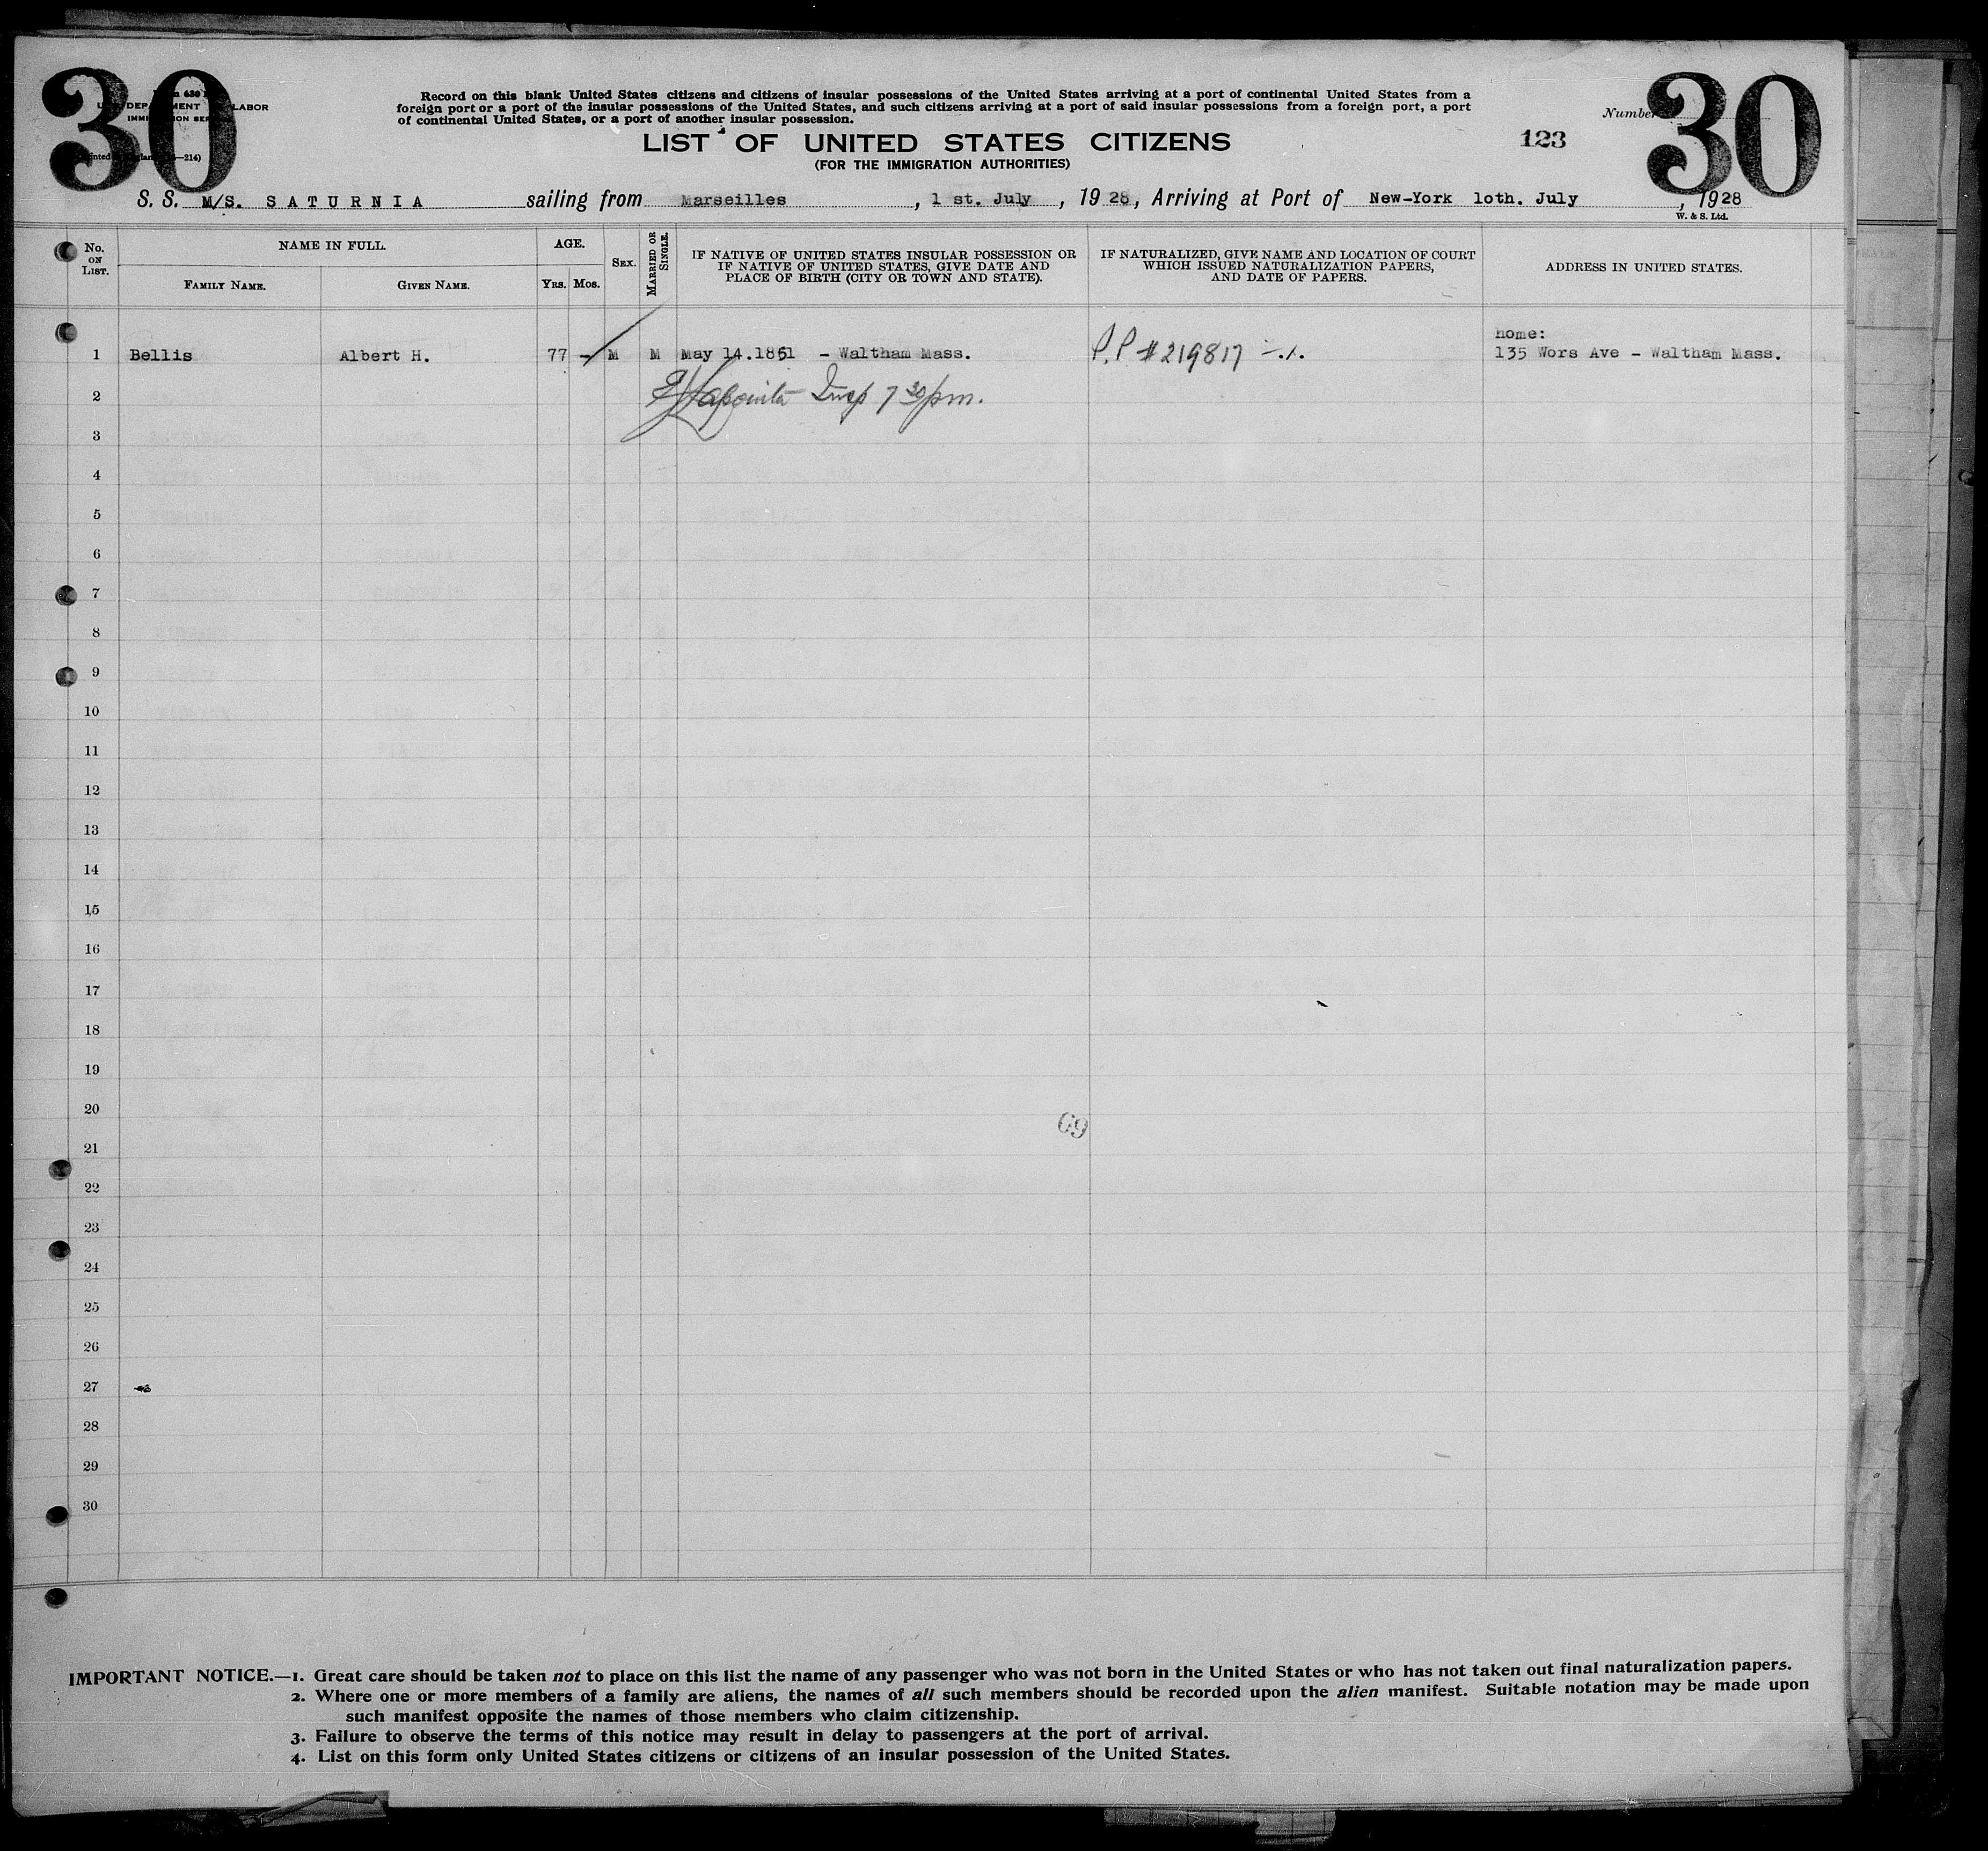 30
30
LABOR
Record on this blank United States citizens and citizens of insular possessions of the United States arriving at a port of continental United States from a
foreign port or a port of the insular possessions of the United States, and such citizens arriving at a port of said insular possessions from a foreign port, a port
of continental United States, or a port of another insular possession.
Number
LIST OF UNITED STATES CITIZENS
123
(FOR THE IMMIGRATION AUTHORITIES)
S. S. M/S. SATURNIA sailing from Marseilles, 1 st. July, 1928, Arriving at Port of New-York 1oth. July, 1928
W. & S. Ltd.
No. ON LIST.
NAME IN FULL.
FAMILY NAME.
GIVEN NAME.
AGE.
YRS. MOS.
SEX.
MARRIED OR SINGLE.
IF NATIVE OF UNITED STATES INSULAR POSSESSION OR
IF NATIVE OF UNITED STATES, GIVE DATE AND
PLACE OF BIRTH (CITY OR TOWN AND STATE).
IF NATURALIZED, GIVE NAME AND LOCATION OF COURT
WHICH ISSUED NATURALIZATION PAPERS,
AND DATE OF PAPERS.
ADDRESS IN UNITED STATES.
home:
1 Bellis Albert H. 77 - M M May 14.1851 - Waltham Mass. P.P #219817 135 Wors Ave - Waltham Mass.
2 Insp 7 30 pm.
3
4
5
6
7
8
9
10
11
12
13
14
15
16
17
18
19
20
69
21
22
23
24
25
26
27
28
29
30
IMPORTANT NOTICE.—1. Great care should be taken not to place on this list the name of any passenger who was not born in the United States or who has not taken out final naturalization papers.
2. Where one or more members of a family are aliens, the names of all such members should be recorded upon the alien manifest. Suitable notation may be made upon
such manifest opposite the names of those members who claim citizenship.
3. Failure to observe the terms of this notice may result in delay to passengers at the port of arrival.
4. List on this form only United States citizens or citizens of an insular possession of the United States.